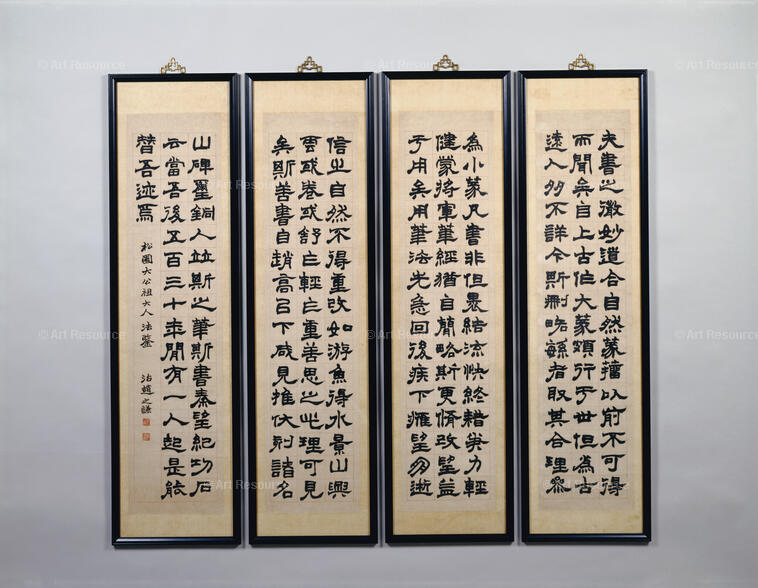 夫書之微妙道合自然篆籀以前不可得
而聞矣自上古作大篆頗行于世但為古
遠人多不詳今斯刪略緐者取其合理參
為小篆凡書非但裹結流快終藉筆力輕
健蒙將軍筆經猶自簡略斯更脩改望益
于用矣用筆法先急回後疾下鷹望朋逝
信之自然不得重改如游魚得水景山興
雲或卷或舒乍輕乍重善思之此理可見
矣斯善書自趙高以下咸見推伏刻諸名
山碑璽銅人並斯之筆斯書秦望紀功石
云當吾後五百三十年閒有一人起是能
替吾迹焉
松圃大公祖大人法鑒 治趙之謙
© Art Resource
© Art Resource
© Art Resource
© Art Resource
© Art Resource
© Art Resource
© Art Resource
© Art Resource